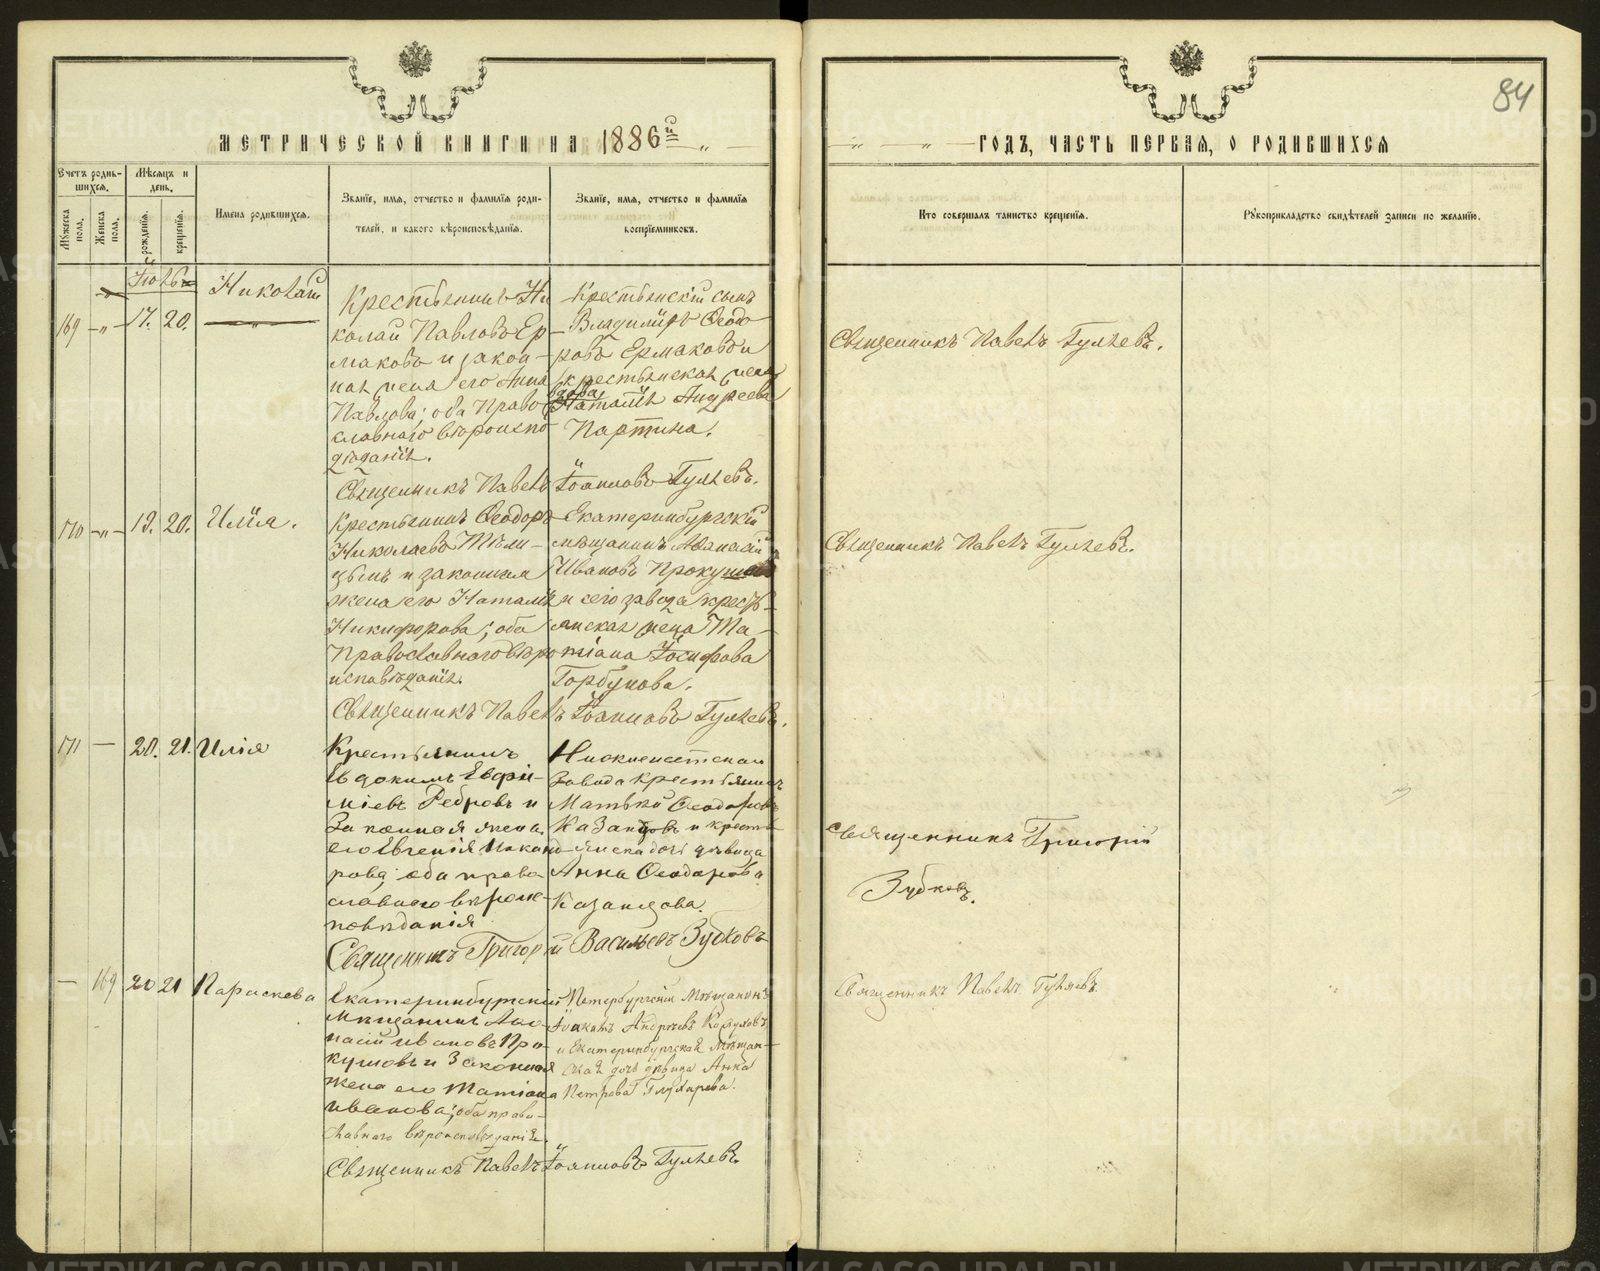 84
МЕТРИЧЕСКОЙ КНИГИ НА 1886й
ГОДЪ, ЧАСТЬ ПЕРВАЯ, О РОДИВШИХСЯ
Счетъ родившихся.
Мѣсяцъ и день.
Мужеска пола.
Женска пола.
рожденія.
крещенія.
Имена родившихся.
Званіе, имя, отчество и фамилія родителей, и какого вѣроисповѣданія.
Званіе, имя, отчество и фамилія воспріемниковъ.
Кто совершалъ таинство крещенія.
Рукоприкладство свидѣтелей записи по желанію.
Іюль
169 - „ - 17. 20.
Николай
Крестьянинъ Ни
колай Павловъ Ер
маковъ и закон-
ная жена его Анна
Павлова; оба Право
славнаго вѣроиспо
вѣданія.
Крестьянскій сынъ
Владиміръ Ѳеодо
ровъ Ермаковъ и
крестьянская жена
Наталія Андреева
Партина.
Священникъ Павелъ Гуляевъ.
Священникъ Павелъ Іоанновъ Гуляевъ.
170 - „ - 19. 20.
Илія.
Крестьянинъ Ѳеодоръ
Николаевъ
и законная
жена его Наталія
Никифорова; оба
Православнаго вѣро
исповѣданія.
Екатеринбургскій
мѣщанинъ Аѳанасій
Ивановъ Прокушевъ
и сего завода кресть-
янская жена Та-
тіана Іосифова
Горбунова.
Священникъ Павелъ Гуляевъ.
Священникъ Павелъ Іоанновъ Гуляевъ.
171 — 20. 21.
Илія
Крестьянинъ
Евдокимъ Евфи-
міевъ Ребровъ и
Законная жена
его Евгенія Никано
рова; оба право
славнаго вѣроис
повѣданія
Нижнеисетскаго
Завода крестьянинъ
Матвѣй Ѳеодоровъ
Казанцовъ и кресть
янска дочь дѣвица
Анна Ѳеодорова
Казанцова.
Священникъ Григорій
Зубковъ.
Священникъ Григорій Васильевъ Зубковъ
— 169 20 21
Параскева
Екатеринбургскій
Мѣщанинъ Аѳа-
насій Ивановъ Про-
кушовъ и Законная
жена его Татіана
Иванова; оба право-
славнаго вѣроисповѣданія.
Петербургскій Мѣщанинъ
Іоакимъ Андреевъ
и Екатеринбургской Мѣщан-
ская дочь дѣвица Анна
Петрова Глухарева.
Священникъ Павелъ Гуляевъ.
Священникъ Павелъ Іоанновъ Гуляевъ.
METRIKI.GASO-URAL.RU